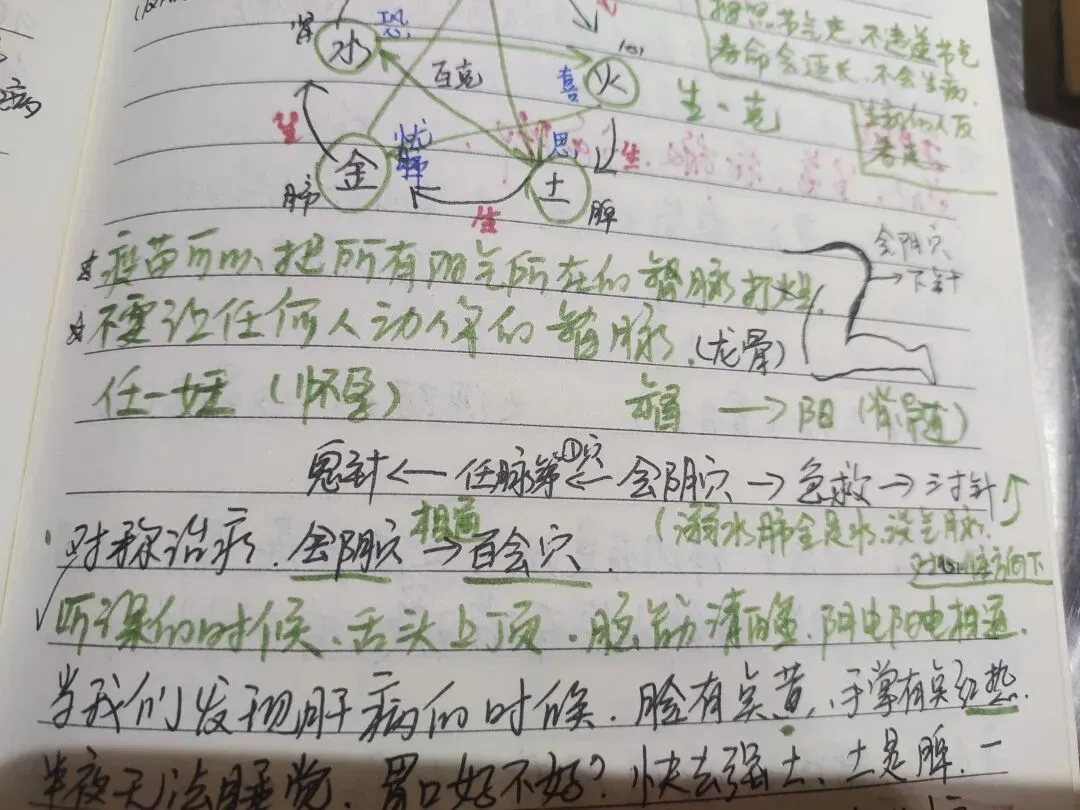 按照节气走，不违逆节气
寿命会延长，不会生病．
肾 水 恐
心
喜 火
互克
生・克
生
忧
金
肺
思
土
脾
生
生
会阴穴
→下针
☆疫苗可以把所有阳气所在的督脉打
☆不要让任何人动你的督脉．(龙骨)
任一妊（怀孕） 督 → 阳（脊髓）
鬼针 ← 任脉第①穴 ← 会阴穴 → 急救 → 三寸针
相通 (溺水肺全是水，没气脉，
对称治病．会阴穴 → 百会穴．
听课的时候、舌头上顶．脑筋清醒．阴电阳电相通．
当我们发现肝病的时候．脸有点黄，手掌有点红热．
半夜无法睡觉．胃口好不好？快去强土、土是脾．一